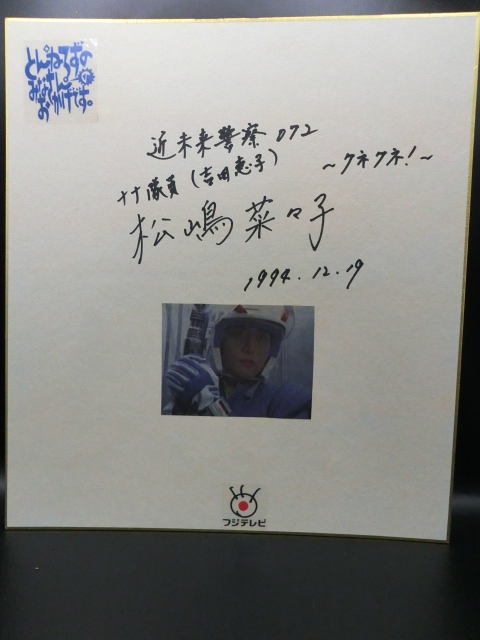 とんねるずの
みなさんの
おかげです。
近未来警察072
ナナ隊員(吉田恵子)
～クネクネ!～
松嶋菜々子
1994.12.19
フジテレビ